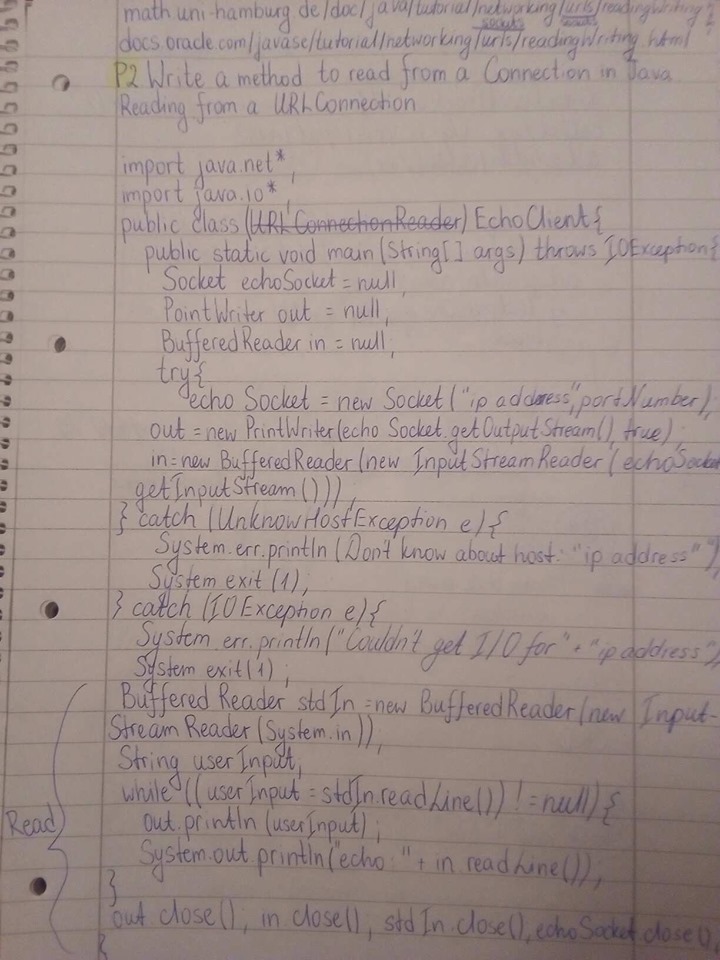 math.uni-hamburg.de/doc/java/tutorial/networking/urls/readingWriting
sockets
docs.oracle.com/javase/tutorial/networking/urls/readingWriting.html
P2 Write a method to read from a Connection in Java
Reading from a URLConnection
import java.net*;
import java.io*;
public class (URL ConnectionReader) EchoClient{
public static void main (String[] args) throws IOException{
Socket echoSocket = null;
PointWriter out = null;
BufferedReader in = null;
try{
echo Socket = new Socket ("ip address", portNumber);
out = new PrintWriter(echo Socket.getOutputStream(), true);
in = new BufferedReader (new InputStreamReader (echoSocket
getInputStream()));
} catch (UnknowHostException e){
System.err.println (Don't know about host: "ip address");
System exit (1);
} catch (IOException e){
System err.println ("Couldn't get I/O for" + "ip address");
System exit(1);
Buffered Reader stdIn = new BufferedReader (new Input-
Stream Reader (System.in));
String userInput;
while ((userInput = stdIn.readLine()) != null) {
out.println (userInput);
Read
System.out println("echo: " + in readLine());
}
out close(); in close(); stdIn.close(); echoSocket.close();
}